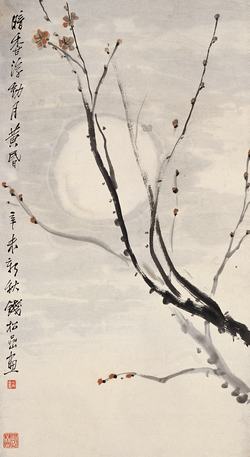 暗香浮動月黃昏
辛未新秋錢松喦畫